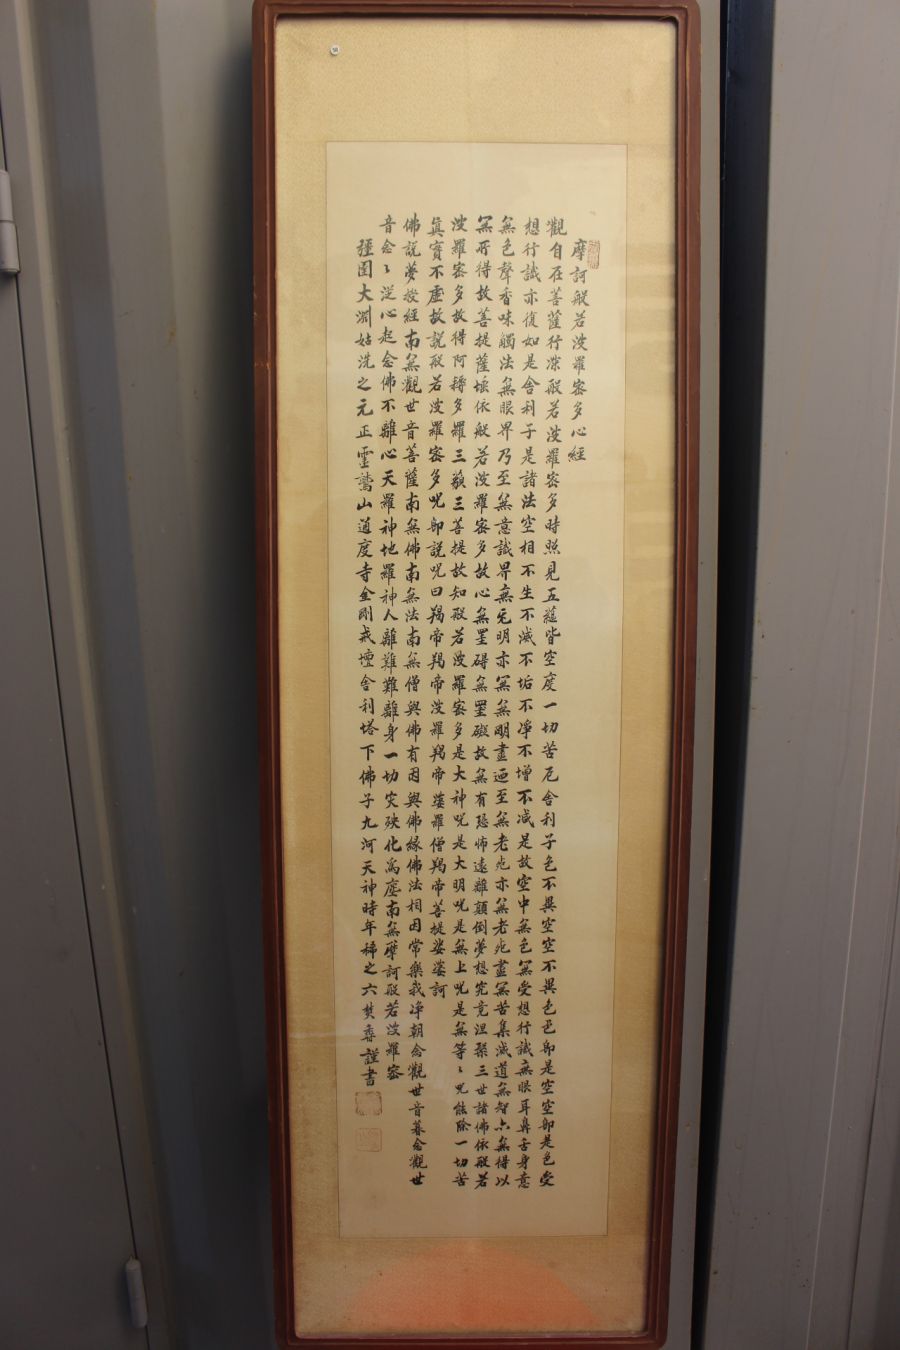 摩訶般若波羅密多心經
觀自在菩薩行深般若波羅密多時照見五蘊皆空度一切苦厄舍利子色不異空空不異色色即是空空即是色受
想行識亦復如是舍利子是諸法空相不生不滅不垢不淨不增不減是故空中無色無受想行識無眼耳鼻舌身意
無色聲香味觸法無眼界乃至無意識界無无明亦無無明盡迺至無老死亦無老死盡無苦集滅道無智亦無得以
無所得故菩提薩埵依般若波羅密多故心無罣碍無罣礙故無有恐怖遠離顛倒夢想究竟涅槃三世諸佛依般若
波羅密多故得阿耨多羅三藐三菩提故知般若波羅密多是大神咒是大明咒是無上咒是無等々咒能除一切苦
真實不虛故說般若波羅密多咒即說咒曰羯帝羯帝波羅羯帝婆羅僧羯帝菩提娑婆訶
佛說夢授經南無觀世音菩薩南無佛南無法南無僧與佛有因與佛緣佛法相因常樂我淨朝念觀世音暮念觀世
音念々從心起念佛不離心天羅神地羅神人離難難離身一切災殃化為塵南無摩訶般若波羅密
彊圉大淵姑洗之元正靈鷲山道度寺金剛戒壇舍利塔下佛子九河天神時年稀之六焚香謹書